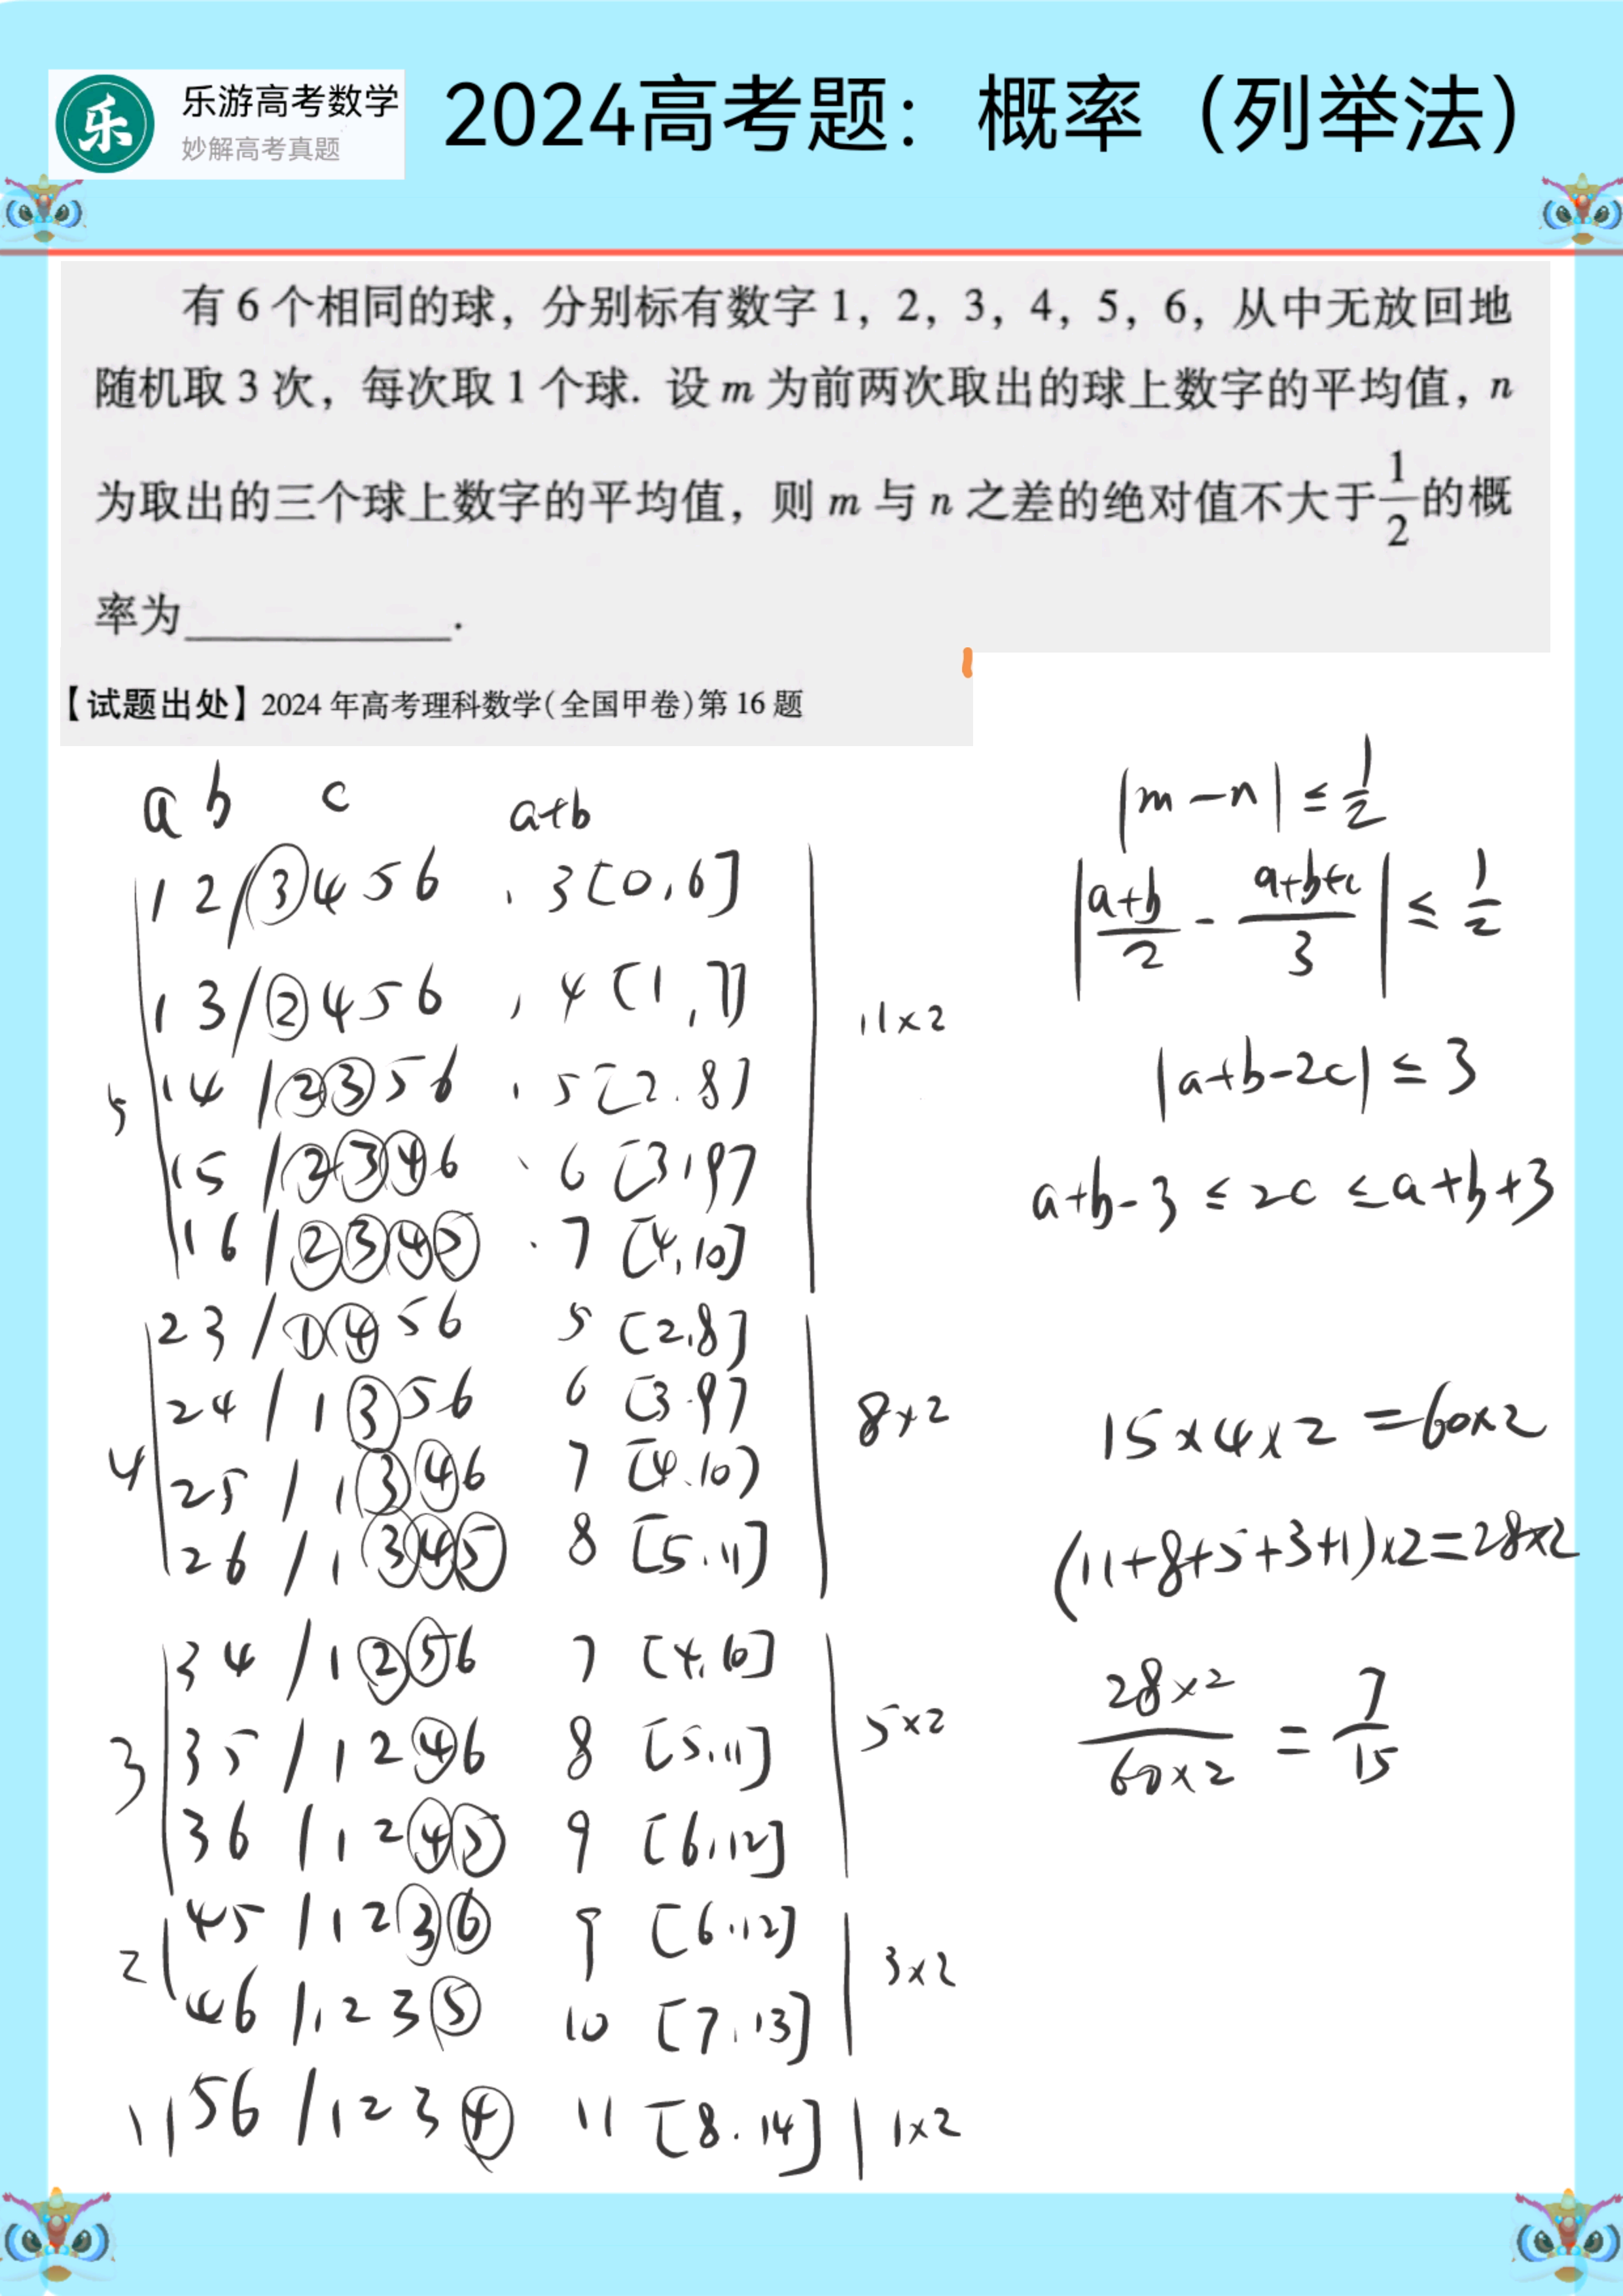 乐
乐游高考数学
妙解高考真题
2024高考题：概率（列举法）
有 6 个相同的球，分别标有数字 1，2，3，4，5，6，从中无放回地
随机取 3 次，每次取 1 个球. 设 m 为前两次取出的球上数字的平均值，n
为取出的三个球上数字的平均值，则 m 与 n 之差的绝对值不大于 1/2 的概
率为__________.
【试题出处】2024 年高考理科数学(全国甲卷)第 16 题
a b c a+b
1 2 / ③ 4 5 6 , 3 [0,6]
1 3 / ② 4 5 6 , 4 [1,7]
11×2
5
1 4 / ② ③ 5 6 , 5 [2.8]
1 5 / ② ③ ④ 6 、 6 [3,9]
1 6 / ② ③ ④ ⑤ . 7 [4,10]
2 3 / ① ④ 5 6 5 [2.8]
2 4 / 1 ③ 5 6 6 [3.9]
8×2
4
2 5 / 1 ③ ④ 6 7 [4.10]
2 6 / 1 ③ ④ ⑤ 8 [5.11]
3 4 / 1 ② ⑤ 6 7 [4,10]
5×2
3
3 5 / 1 2 ④ 6 8 [5.11]
3 6 / 1 2 ④ ⑤ 9 [6,12]
4 5 / 1 2 ③ ⑥ 9 [6.12]
2
3×2
4 6 / 1 2 3 ⑤ 10 [7.13]
1
5 6 / 1 2 3 ④ 11 [8.14] 1×2
|m-n| ≤ 1/2
|(a+b)/2 - (a+b+c)/3| ≤ 1/2
|a+b-2c| ≤ 3
a+b-3 ≤ 2c ≤ a+b+3
15×4×2=60×2
(11+8+5+3+1)×2=28×2
(28×2)/(60×2) = 7/15